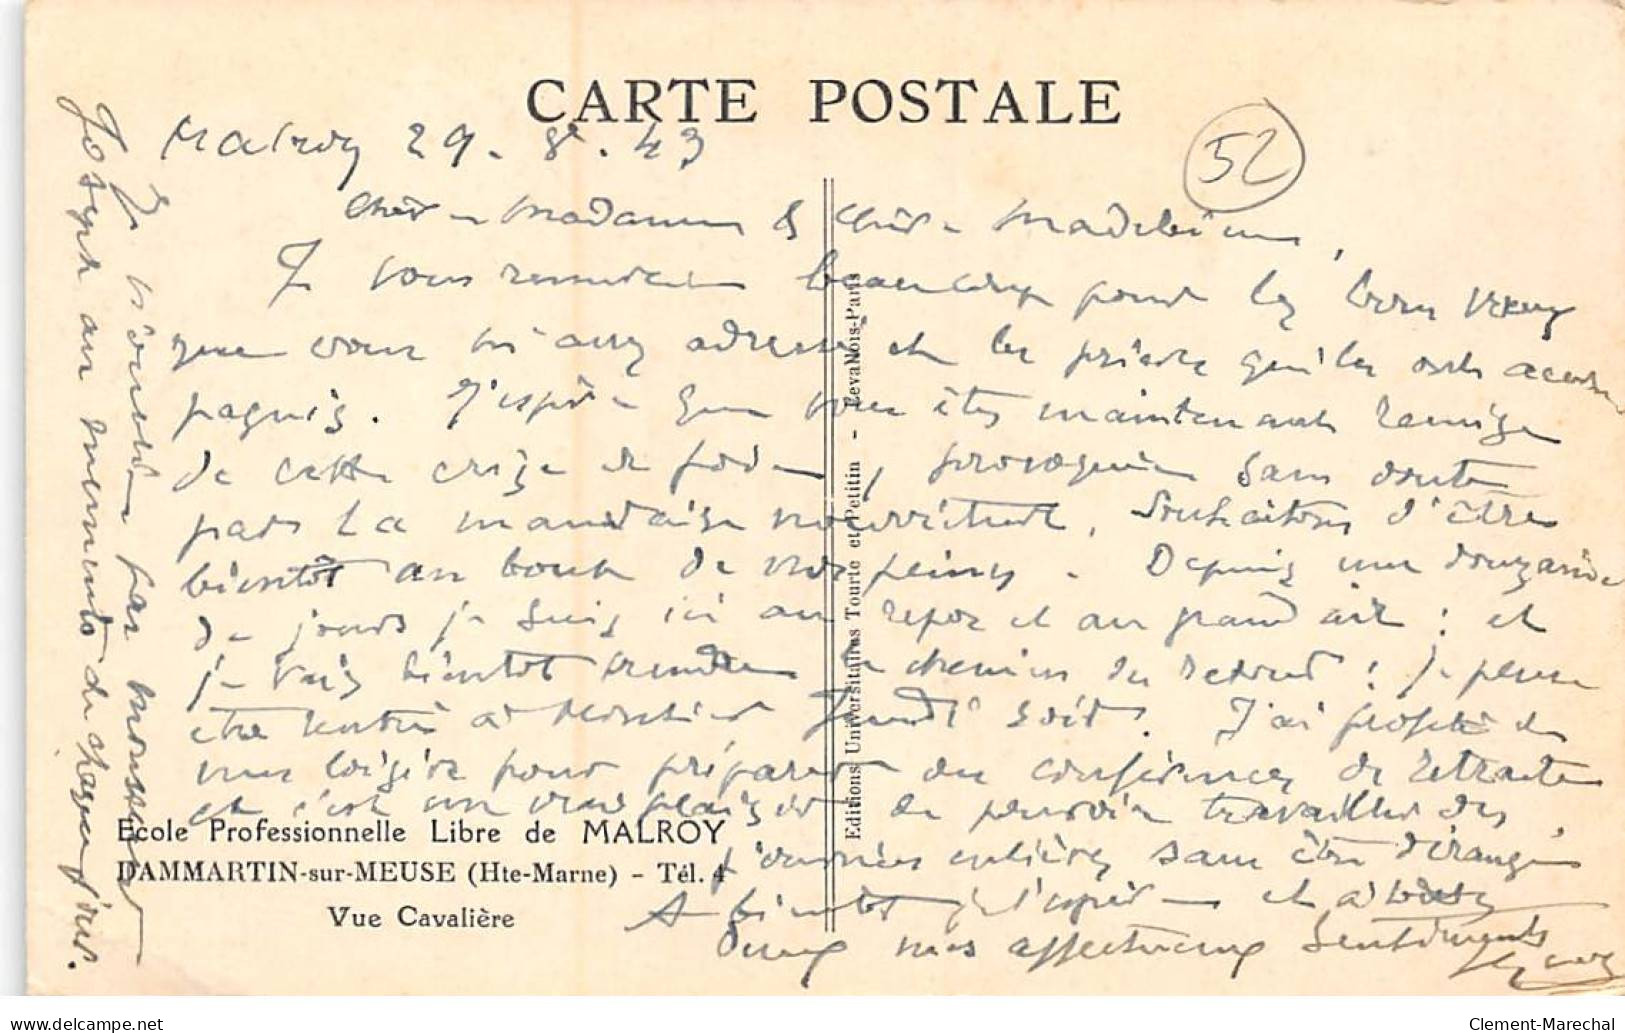 CARTE POSTALE
Malroy 29.8.43
52
Chère Madame & chère Madeleine,
Je vous remercie beaucoup pour les bons vœux
que vous m'avez adressés et les prières qui les ont accom
pagnés. J'espère que vous êtes maintenant remise
de cette crise de foie, provoquée sans doute
par la mauvaise nourriture. Souhaitons d'être
bientôt au bout de nos peines. Depuis une douzaine
de jours je suis ici au repos et au grand air : et
je vais bientôt prendre le chemin du retour : je pense
être rentré à jeudi soir. J'ai profité de
mes loisirs pour préparer des conférences de retraite
et c'est un vrai plaisir de pouvoir travailler des
journées entières sans être dérangé.
A bientôt je l'espère et à toutes
deux mes affectueux sentiments
Je n'oublie pas Monsieur
Joseph au memento de chaque jour.
Ecole Professionnelle Libre de MALROY
DAMMARTIN-sur-MEUSE (Hte-Marne) - Tél. 4
Vue Cavalière
Editions Universitaires Tourte et Petitin - Levallois-Paris
delcampe.net
Clement-Marechal